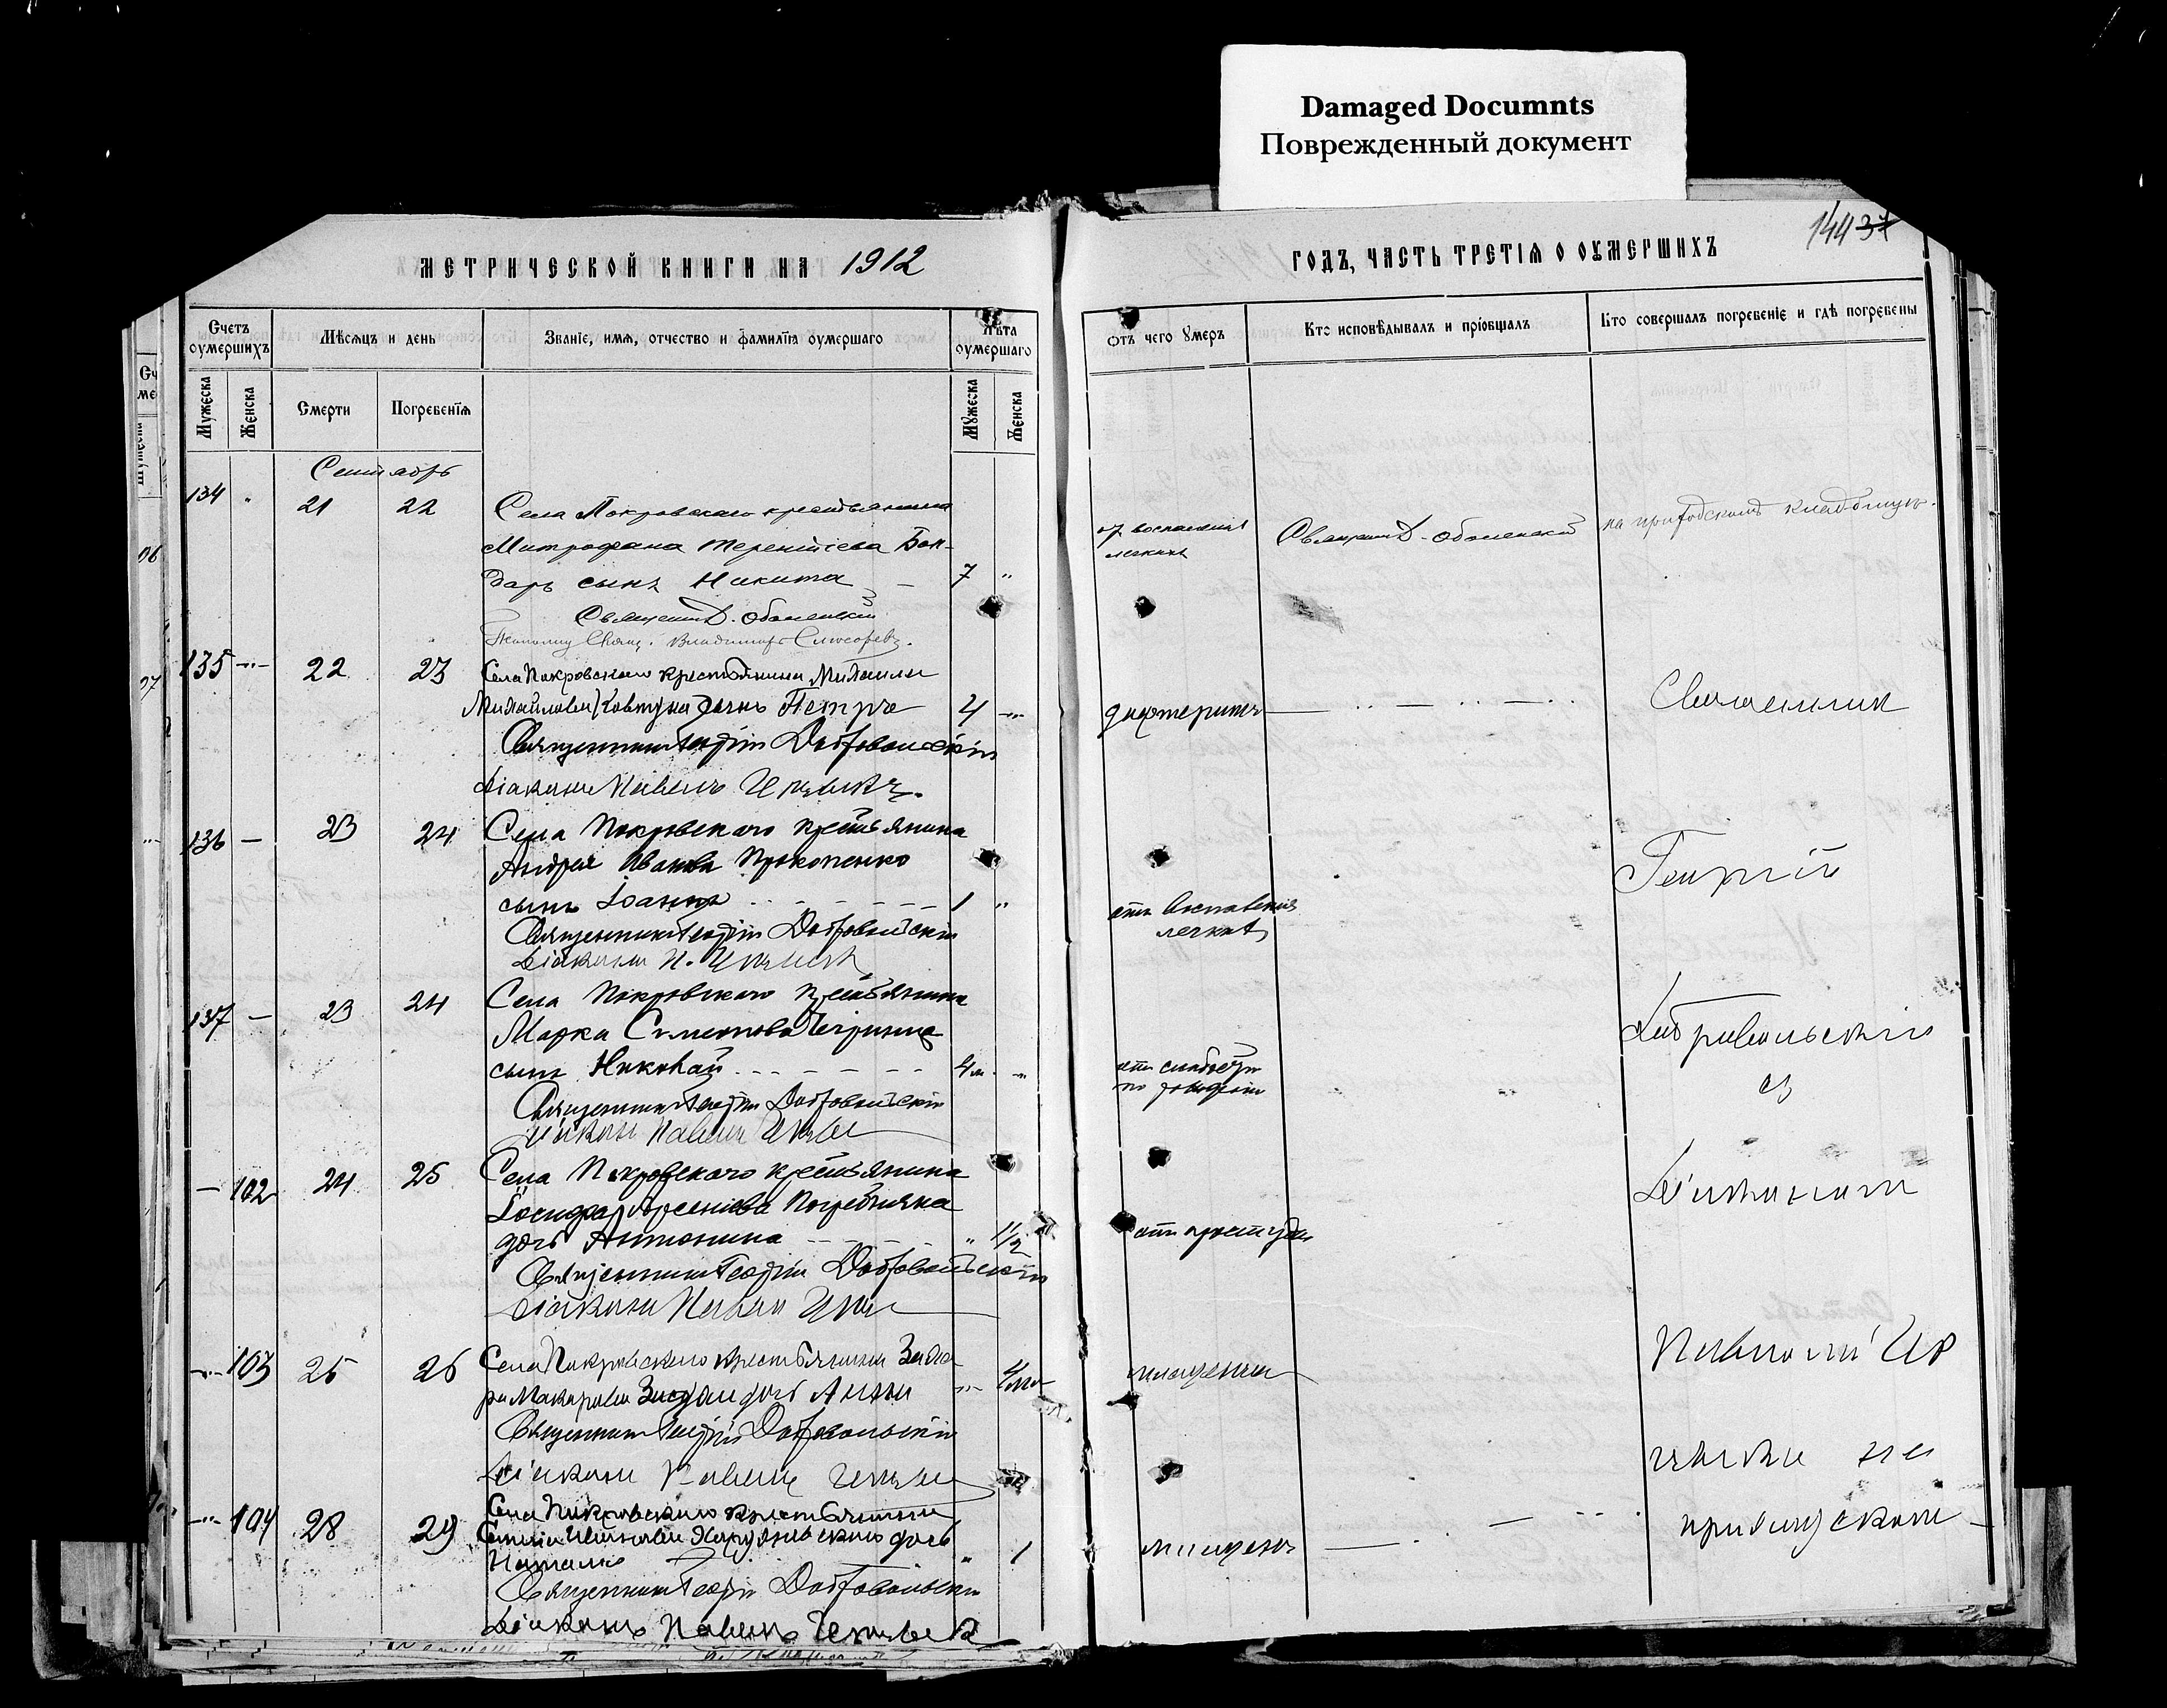 Damaged Documnts
Поврежденный документ
МЕТРИЧЕСКОЙ КНИГИ НА 1912
ГОДЪ, ЧАСТЬ ТРЕТІЯ О ОУМЕРШИХЪ
144 37
Счетъ оумершихъ
Мѣсяцъ и день
Званіе, имя, отчество и фамилія оумершаго
Лѣта оумершаго
Мужеска
Женска
Смерти
Погребенія
Мужеска
Женска
Отъ чего умеръ
Кто исповѣдывалъ и пріобщалъ
Кто совершалъ погребеніе и гдѣ погребены
Сентябрь
134 " 21 22 Села Покровскаго крестьянина
Митрофана Терентіева Бон-
дарь сынъ Никита 7 "
Священ. Д. Оболенскій
Владиміръ
от воспаленія
легкихъ
Священ. Д. Оболенскій
на приходскомъ кладбищѣ.
135 22 23 Села Покровскаго крестьянина Михаила
Михайлова Ковтуна сынъ Петръ 4
Священникъ Георгій Добровольскій
Діаконъ Павелъ
дифтерита
Священник
136 — 23 24 Села Покровскаго крестьянина
Андрея Иванова Прокопенко
сынъ Іоаннъ 1 "
Священникъ Георгій Добровольскій
Діаконъ П.
отъ воспаленія
легкихъ
Георгій
137 — 23 24 Села Покровскаго крестьянина
Марка Симеонова
сынъ Николай 4 м. "
Священникъ Георгій Добровольскій
Діаконъ Павелъ
отъ слабости
по рожденію
Добровольскій
съ
— 102 24 25 Села Покровскаго крестьянина
Іосифа Арсеніева Погребняка
дочь Антонина " 1 1/2
Священникъ Георгій Добровольскій
Діаконъ Павелъ
отъ простуды
Діакономъ
103 25 26 Села Покровскаго крестьянина Заха-
ра Макарова дочь Анна
Священникъ Георгій Добровольскій
Діаконъ Павелъ
младенч.
Павломъ
на
104 28 29 Села Покровскаго крестьянина
дочь
Наталія " 1
Священникъ Георгій Добровольскій
Діаконъ Павелъ
приходском